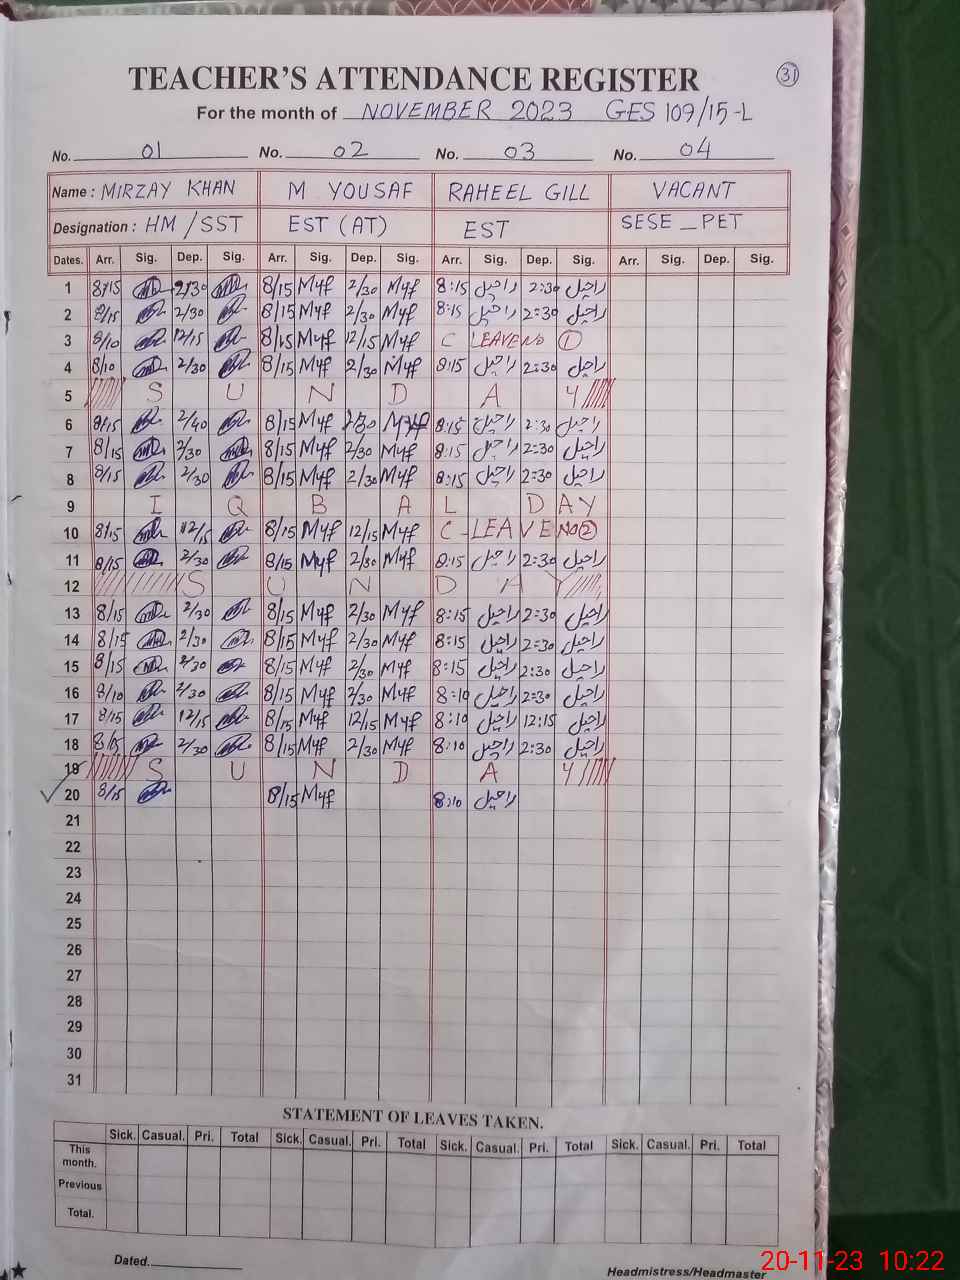 TEACHER'S ATTENDANCE REGISTER 31
For the month of NOVEMBER 2023 GES 109/15-L
No. 01 No. 02 No. 03 No. 04
Name: MIRZAY KHAN M YOUSAF RAHEEL GILL VACANT
Designation: HM/SST EST (AT) EST SESE_PET
Dates. Arr. Sig. Dep. Sig. Arr. Sig. Dep. Sig. Arr. Sig. Dep. Sig. Arr. Sig. Dep. Sig.
1 8/15 2/30 8/15 Myf 2/30 Myf 8:15 راحیل 2:30 راحیل
2 8/15 2/30 8/15 Myf 2/30 Myf 8:15 راحیل 2:30 راحیل
3 8/10 12/15 8/15 Myf 12/15 Myf C LEAVE NO 1
4 8/10 2/30 8/15 Myf 2/30 Myf 8:15 راحیل 2:30 راحیل
5 S U N D A Y
6 8/15 2/40 8/15 Myf 2/30 Myf 8:15 راحیل 2:30 راحیل
7 8/15 2/30 8/15 Myf 2/30 Myf 8:15 راحیل 2:30 راحیل
8 8/15 2/30 8/15 Myf 2/30 Myf 8:15 راحیل 2:30 راحیل
9 I Q B A L D A Y
10 8/15 12/15 8/15 Myf 12/15 Myf C-LEAVE NO 2
11 8/15 2/30 8/15 Myf 2/30 Myf 8:15 راحیل 2:30 راحیل
12 S U N D A Y
13 8/15 2/30 8/15 Myf 2/30 Myf 8:15 راحیل 2:30 راحیل
14 8/15 2/30 8/15 Myf 2/30 Myf 8:15 راحیل 2:30 راحیل
15 8/15 2/30 8/15 Myf 2/30 Myf 8:15 راحیل 2:30 راحیل
16 8/10 2/30 8/15 Myf 2/30 Myf 8:10 راحیل 2:30 راحیل
17 8/15 12/15 8/15 Myf 12/15 Myf 8:10 راحیل 12:15 راحیل
18 8/15 2/30 8/15 Myf 2/30 Myf 8:10 راحیل 2:30 راحیل
19 S U N D A Y
20 8/15 8/15 Myf 8:10 راحیل
21
22
23
24
25
26
27
28
29
30
31
STATEMENT OF LEAVES TAKEN.
Sick. Casual. Pri. Total Sick. Casual. Pri. Total Sick. Casual. Pri. Total Sick. Casual. Pri. Total
This month.
Previous
Total.
Dated. Headmistress/Headmaster
20-11-23 10:22